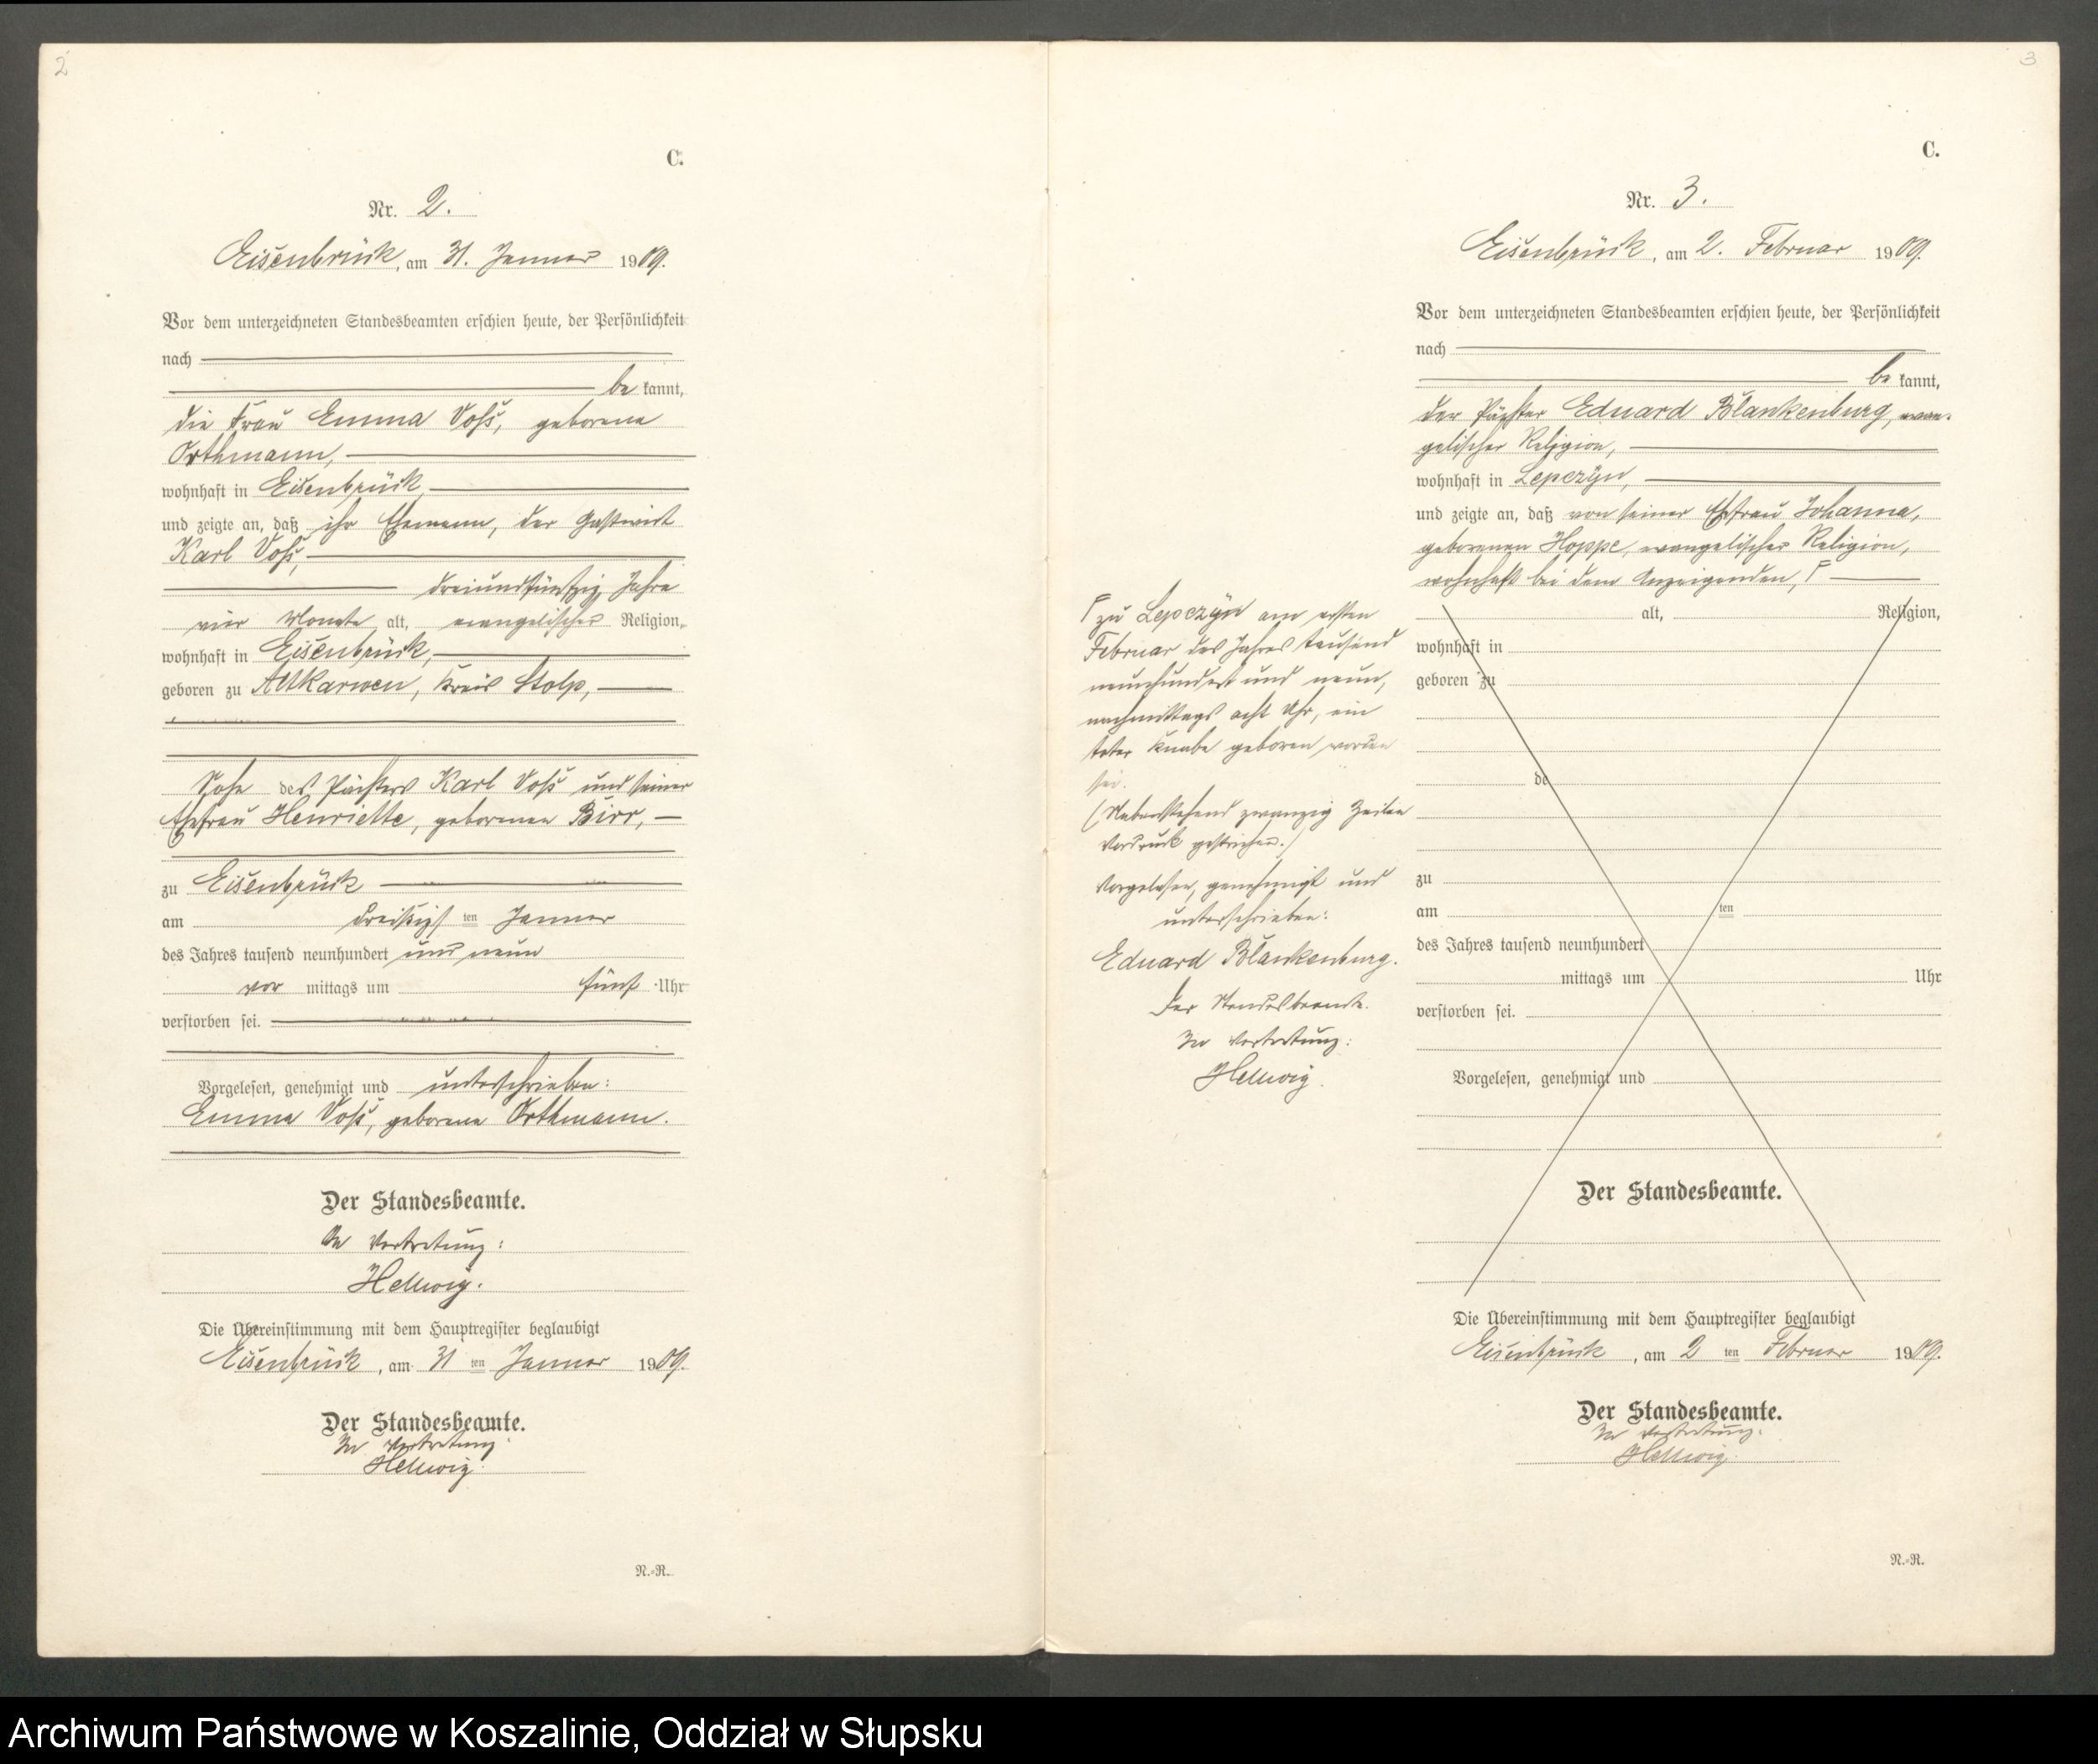 2
C.
Nr. 2.
Eisenbrück, am 31. Januar 1909.
Vor dem unterzeichneten Standesbeamten erschien heute, der Persönlichkeit
nach
be kannt,
die Frau Emma Voß, geborene
Orthmann,
wohnhaft in Eisenbrück,
und zeigte an, daß ihr Ehemann, der Gastwirt
Karl Voß,
dreiundfünfzig Jahre
vier Monate alt, evangelischer Religion,
wohnhaft in Eisenbrück,
geboren zu Altkarwen, Kreis Stolp,
Sohn des Pächters Karl Voß und seiner
Ehefrau Henriette, geborenen Birr,
zu Eisenbrück
am dreißigsten Januar
des Jahres tausend neunhundert und neun
vor mittags um fünf Uhr
verstorben sei.
Vorgelesen, genehmigt und unterschrieben:
Emma Voß, geborene Orthmann.
Der Standesbeamte.
In Vertretung:
Hellwig.
Die Übereinstimmung mit dem Hauptregister beglaubigt
Eisenbrück, am 31 ten Januar 1909.
Der Standesbeamte.
In Vertretung:
Hellwig.
N.-R.
3
C.
Nr. 3.
Eisenbrück, am 2. Februar 1909.
Vor dem unterzeichneten Standesbeamten erschien heute, der Persönlichkeit
nach
be kannt,
der Pächter Eduard Blankenburg, evan-
gelischer Religion,
wohnhaft in Lepczyn,
und zeigte an, daß von seiner Ehefrau Johanna,
geborenen Hoppe, evangelischer Religion,
wohnhaft bei dem Anzeigenden,
zu Lepczyn am ersten
Februar des Jahres tausend
neunhundert und neun,
nachmittags acht Uhr, ein
toter Knabe geboren worden
sei.
(Nebenstehend zwanzig Zeilen
Vordruck gestrichen.)
Vorgelesen, genehmigt und
unterschrieben:
Eduard Blankenburg.
Der Standesbeamte.
In Vertretung:
Hellwig.
alt, Religion,
wohnhaft in
geboren zu
de
zu
am ten
des Jahres tausend neunhundert
mittags um Uhr
verstorben sei.
Vorgelesen, genehmigt und
Der Standesbeamte.
Die Übereinstimmung mit dem Hauptregister beglaubigt
Eisenbrück, am 2 ten Februar 1909.
Der Standesbeamte.
In Vertretung:
Hellwig.
N.-R.
Archiwum Państwowe w Koszalinie, Oddział w Słupsku